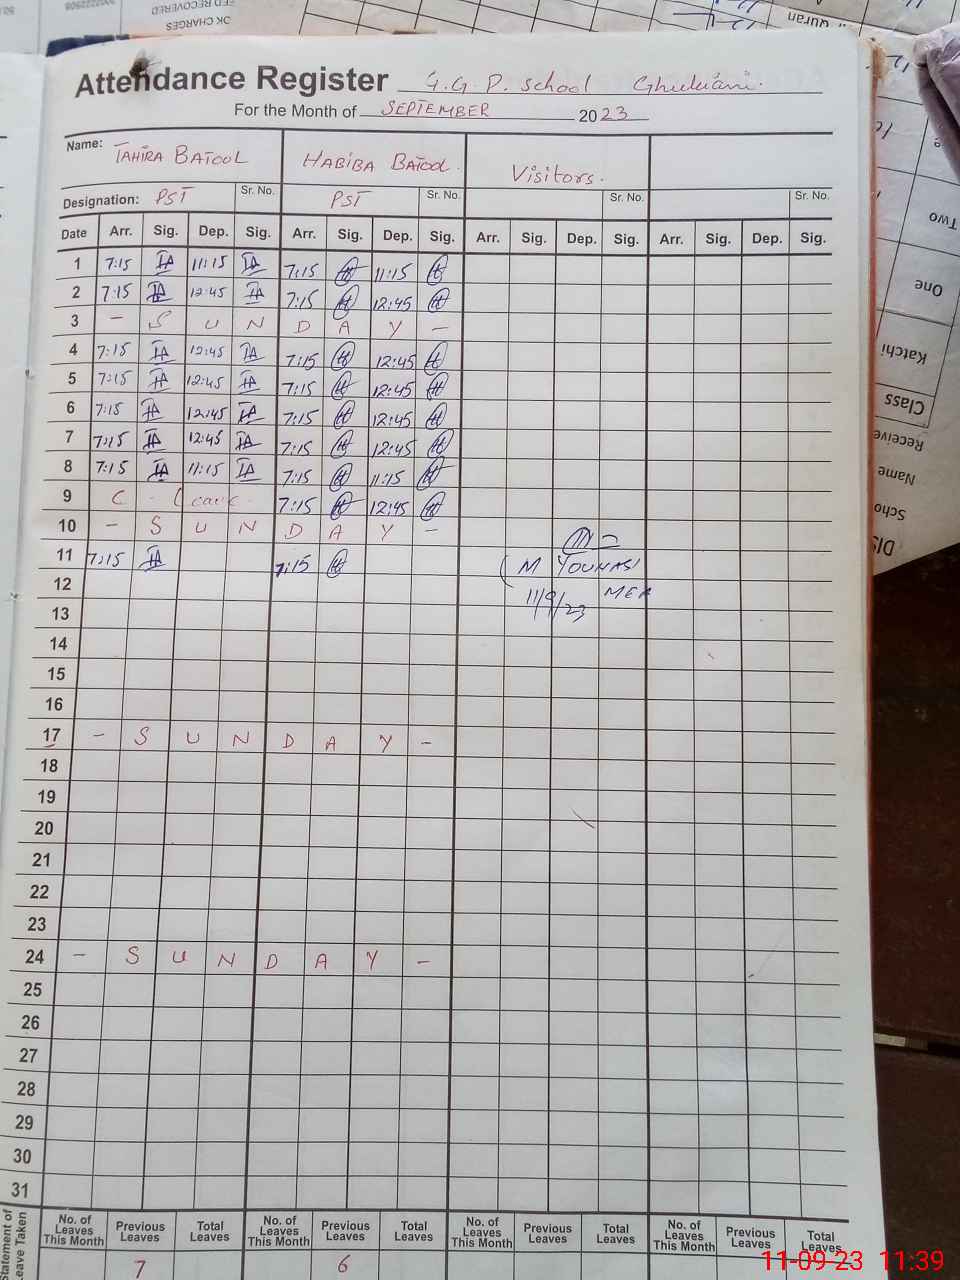 OK CHARGES
Attendance Register G.G.P. School Ghulwani.
For the Month of SEPTEMBER 2023
Name: TAHIRA BATOOL HABIBA BATOOL. Visitors.
Designation: PST Sr. No. PST Sr. No. Sr. No. Sr. No.
Date Arr. Sig. Dep. Sig. Arr. Sig. Dep. Sig. Arr. Sig. Dep. Sig. Arr. Sig. Dep. Sig.
1 7:15 11:15 7:15 11:15
2 7:15 12:45 7:15 12:45
3 - S U N D A Y -
4 7:15 12:45 7:15 12:45
5 7:15 12:45 7:15 12:45
6 7:15 12:45 7:15 12:45
7 7:15 12:45 7:15 12:45
8 7:15 11:15 7:15 11:15
9 C. Leave 7:15 12:45
10 - S U N D A Y -
11 7:15 7:15 (M YOUNAS)
12 11/9/23 MEA
13
14
15
16
17 - S U N D A Y -
18
19
20
21
22
23
24 - S U N D A Y -
25
26
27
28
29
30
31
Statement of Leave Taken No. of Leaves This Month Previous Leaves Total Leaves No. of Leaves This Month Previous Leaves Total Leaves No. of Leaves This Month Previous Leaves Total Leaves No. of Leaves This Month Previous Leaves Total Leaves
7 6
Quran
Two
One
Katchi
Class
Receive
Name
Scho
DIS
11-09-23 11:39